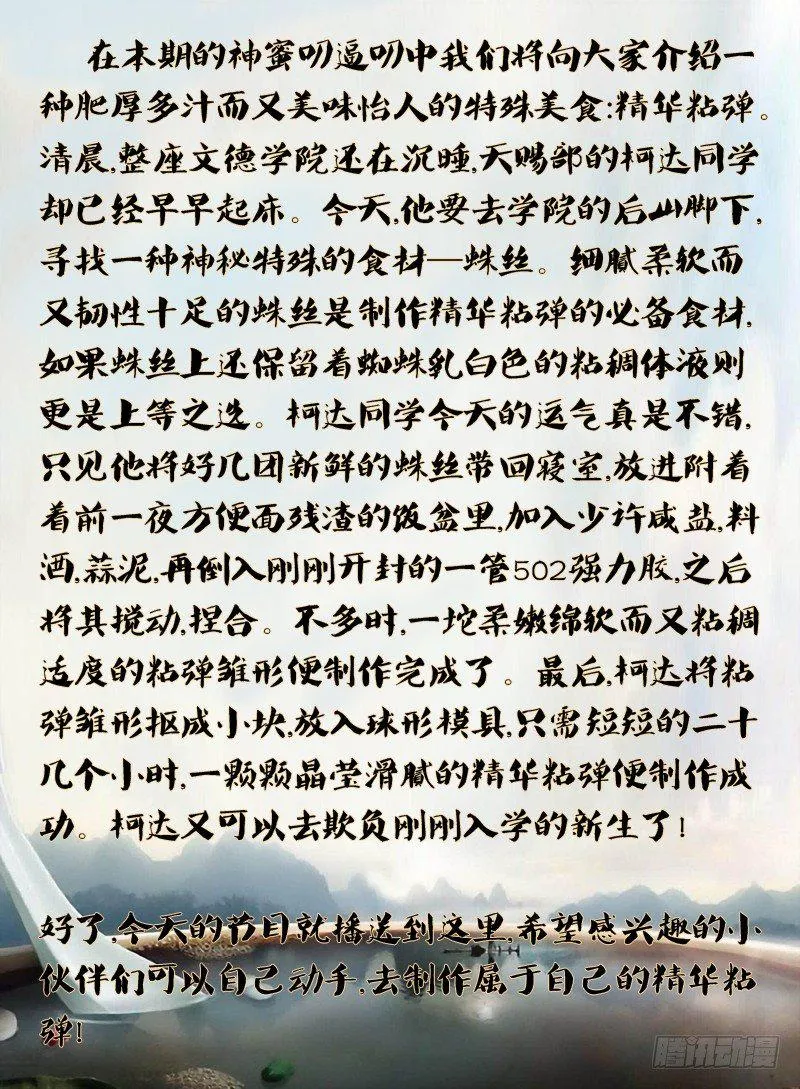 在本期的神蜜叨逼叨中我们将向大家介绍一
种肥厚多汁而又美味怡人的特殊美食:精华粘弹。
清晨,整座文德学院还在沉睡,天赐部的柯达同学
却已经早早起床。今天,他要去学院的后山脚下,
寻找一种神秘特殊的食材—蛛丝。细腻柔软而
又韧性十足的蛛丝是制作精华粘弹的必备食材,
如果蛛丝上还保留着蜘蛛乳白色的粘稠体液则
更是上等之选。柯达同学今天的运气真是不错,
只见他将好几团新鲜的蛛丝带回寝室,放进附着
着前一夜方便面残渣的饭盆里,加入少许咸盐,料
酒,蒜泥,再倒入刚刚开封的一管502强力胶,之后
将其搅动,捏合。不多时,一坨柔嫩绵软而又粘稠
适度的粘弹雏形便制作完成了。最后,柯达将粘
弹雏形抠成小块,放入球形模具,只需短短的二十
几个小时,一颗颗晶莹滑腻的精华粘弹便制作成
功。柯达又可以去欺负刚刚入学的新生了!
好了,今天的节目就播送到这里,希望感兴趣的小
伙伴们可以自己动手,去制作属于自己的精华粘
弹!
腾讯动漫